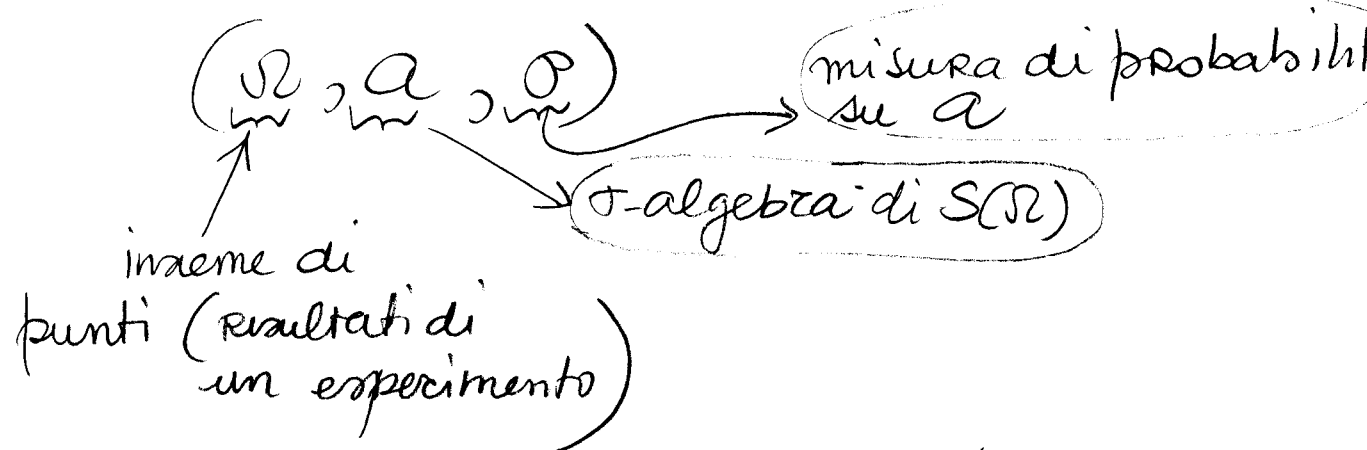 (Ω, a, P)
misura di probabili
su a
σ-algebra di S(Ω)
insieme di
punti (risultati di
un esperimento)